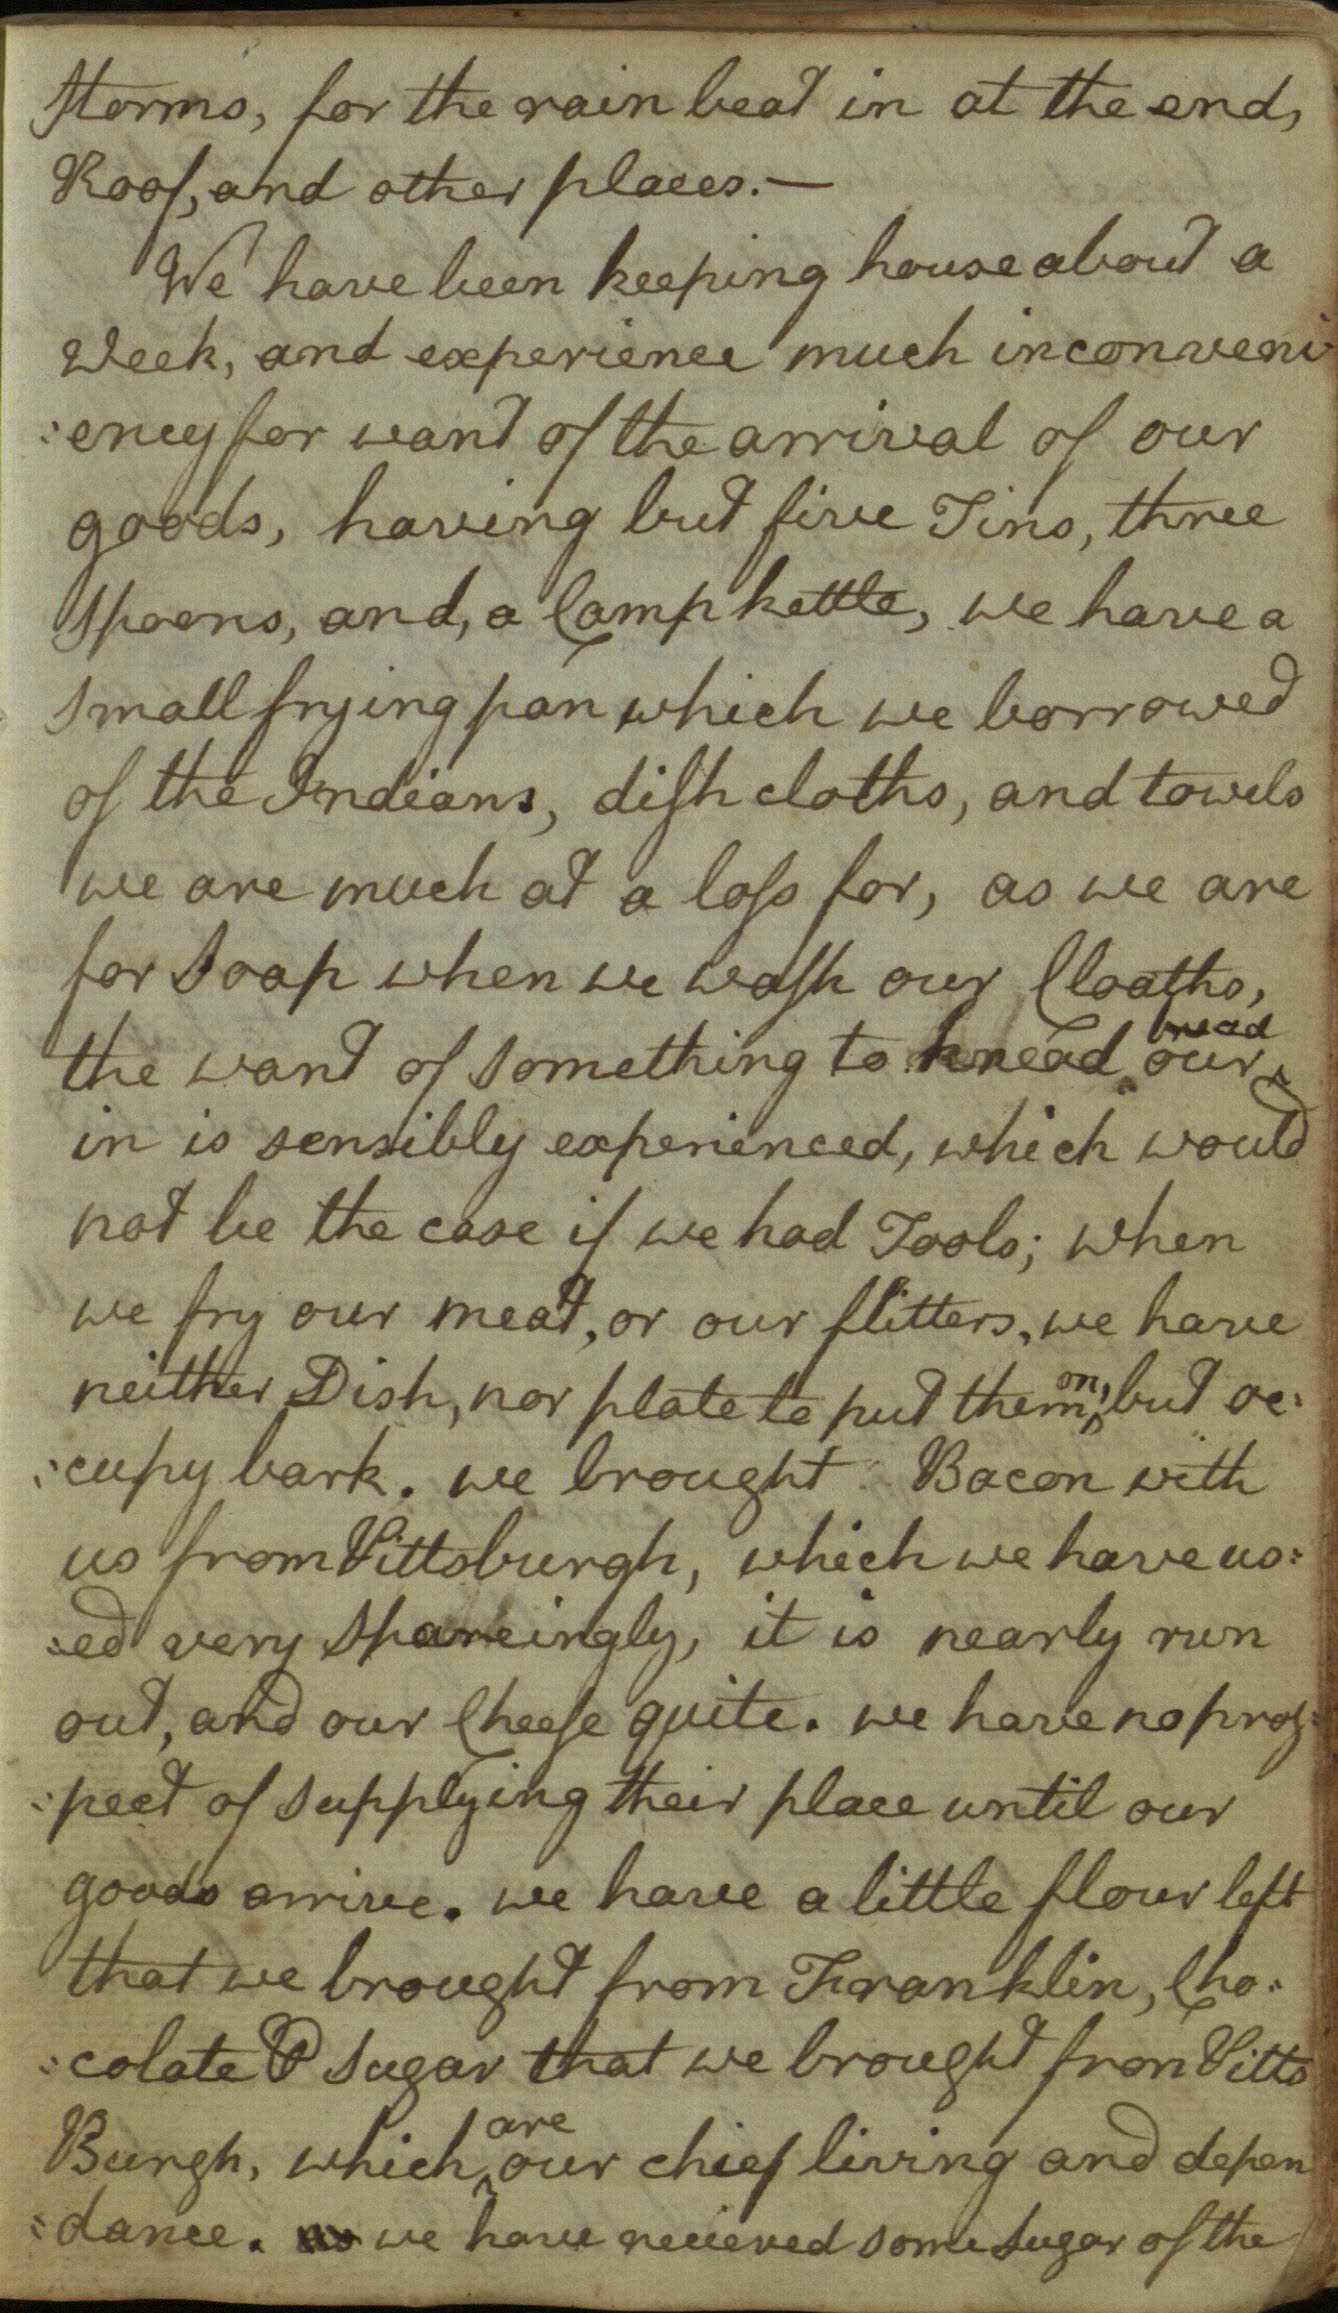 storms, for the rain beat in at the end,
Roof, and other places.—
We have been keeping house about a
Week, and experience much inconveni
:ency for want of the arrival of our
goods, having but five Tins, three
spoons, and, a Camp kettle, we have a
small frying pan which we borrowed
of the Indians, dish cloths, and towels
we are much at a loss for, as we are
for Soap when we wash our Cloaths,
the want of something to knead our bread
in is sensibly experienced, which would
not be the case if we had Tools; when
we fry our meat, or our flitters, we have
neither Dish, nor plate to put them on, but oc:
:cupy bark. we brought Bacon with
us from Pittsburgh, which we have us:
:ed very spareingly, it is nearly run
out, and our Cheese quite. we have no pros:
:pect of supplying their place until our
goods arrive. we have a little flour left
that we brought from Franklin, Cho:
:colate & sugar that we brought from Pitts
Burgh, which are our chief living and depen
:dance. we have recieved some sugar of the